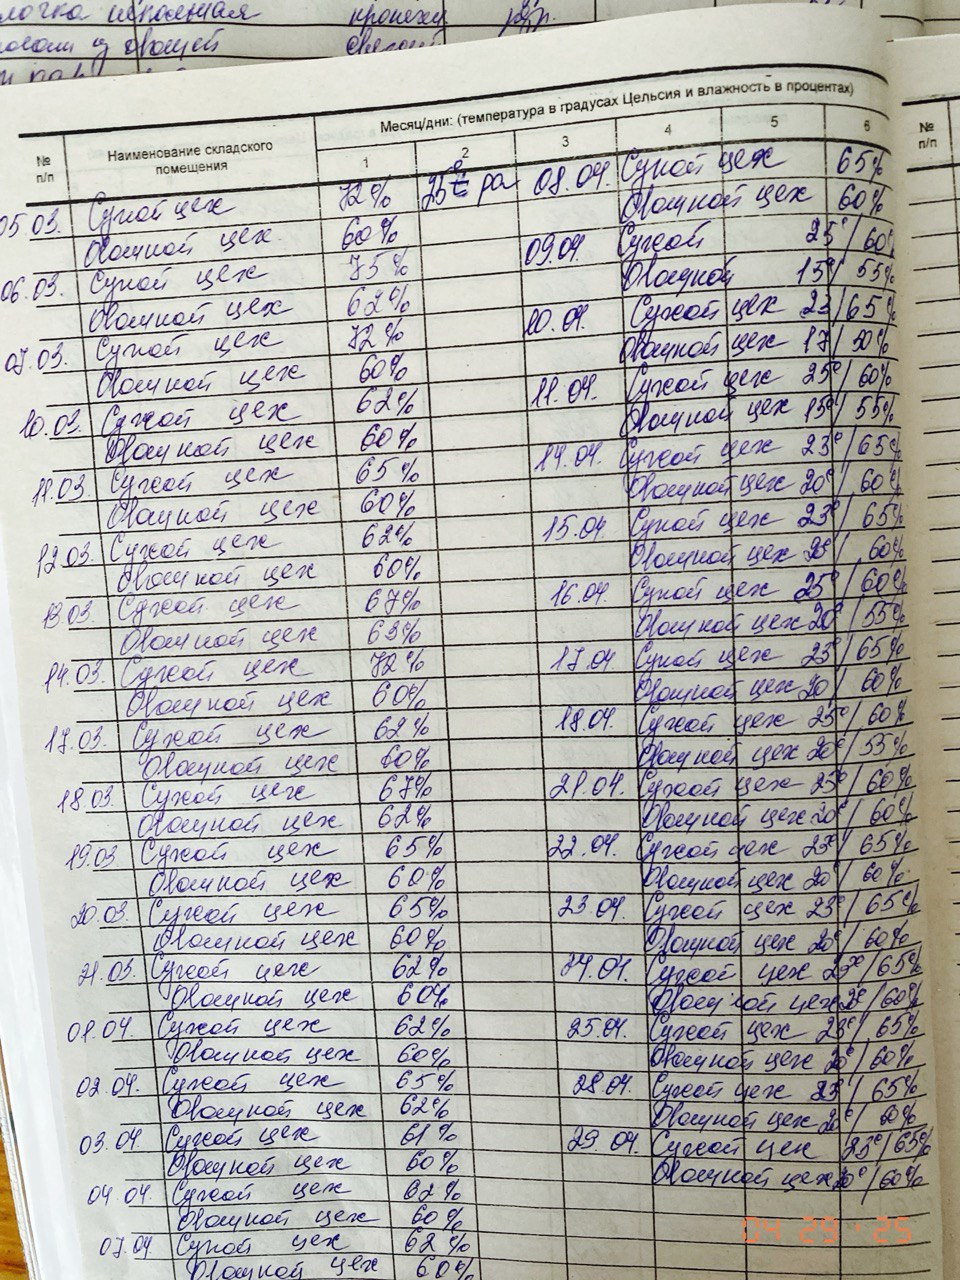 исполная
овощей
Месяц/дни: (температура в градусах Цельсия и влажность в процентах)
№ п/п
Наименование складского помещения
1 2 3 4 5 6
№ п/п
05.03. Сухой цех 72% 25
Овощной цех 60%
06.03. Сухой цех 75%
Овощной цех 62%
07.03. Сухой цех 72%
Овощной цех 60%
10.03. Сухой цех 62%
Овощной цех 60%
11.03. Сухой цех 65%
Овощной цех 60%
12.03. Сухой цех 62%
Овощной цех 60%
13.03. Сухой цех 67%
Овощной цех 63%
14.03. Сухой цех 72%
Овощной цех 60%
17.03. Сухой цех 62%
Овощной цех 60%
18.03. Сухой цех 67%
Овощной цех 62%
19.03 Сухой цех 65%
Овощной цех 60%
20.03. Сухой цех 65%
Овощной цех 60%
21.03. Сухой цех 62%
Овощной цех 60%
01.04. Сухой цех 62%
Овощной цех 60%
02.04. Сухой цех 65%
Овощной цех 62%
03.04 Сухой цех 61%
Овощной цех 60%
04.04. Сухой цех 62%
Овощной цех 60%
07.04 Сухой цех 62%
Овощной цех 60%
08.04. Сухой цех 65%
Овощной цех 60%
09.04. Сухой 25°/60
Овощной 15°/55%
10.04. Сухой цех 23/65%
Овощной цех 17/50%
11.04. Сухой цех 25°/60%
Овощной цех 15°/55%
14.04. Сухой цех 23°/65%
Овощной цех 20°/60%
15.04 Сухой цех 23°/65%
Овощной цех 20°/60%
16.04. Сухой цех 25°/60%
Овощной цех 20°/55%
17.04 Сухой цех 23°/65%
Овощной цех 20/60%
18.04. Сухой цех 25°/60%
Овощной цех 20°/55%
21.04. Сухой цех 23°/60%
Овощной цех 20°/60%
22.04. Сухой цех 23°/65%
Овощной цех 20°/60%
23.04. Сухой цех 23°/65%
Овощной цех 20°/60%
24.04. Сухой цех 23°/65%
Овощной цех 20°/60%
25.04. Сухой цех 23°/65%
Овощной цех 20°/60%
28.04. Сухой цех 23°/65%
Овощной цех 20°/60%
29.04. Сухой цех 23°/65%
Овощной цех 20°/60%
04 29 '25